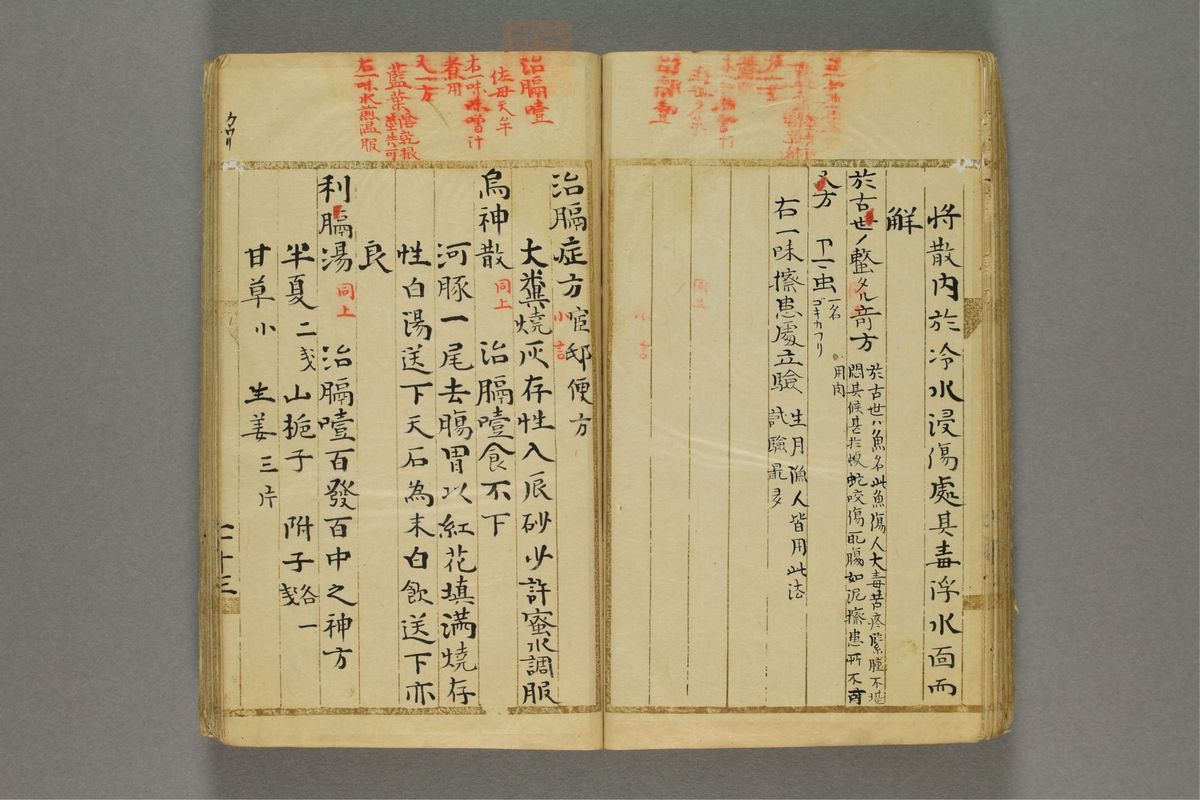 將散内於冷水浸傷處其毒浮水面而
解
於古世ノ螫タル奇方
於古世ハ魚名此魚傷人大毒苦疼紫腫不堪
悶其候甚於蝮蛇咬傷
又方
虫一名ゴキカフリ
用肉
右一味擦患處立驗
生月漁人皆用此法
試驗最多
治膈噎
佐毋天牟
右一味味噌汁
煮用
又一方
藍葉陰乾根莖共可
右一味水煎温服
治膈症方
宦邸便方
大糞燒灰存性入辰砂少許蜜水調服
烏神散 同上 治膈噎食不下
河豚一尾去腸胃以紅花填滿燒存
性白湯送下天石為末白飲送下亦
良
利膈湯 同上 治膈噎百發百中之神方
半夏二戔 山梔子 附子各一戔
甘草小 生姜三片
二十三